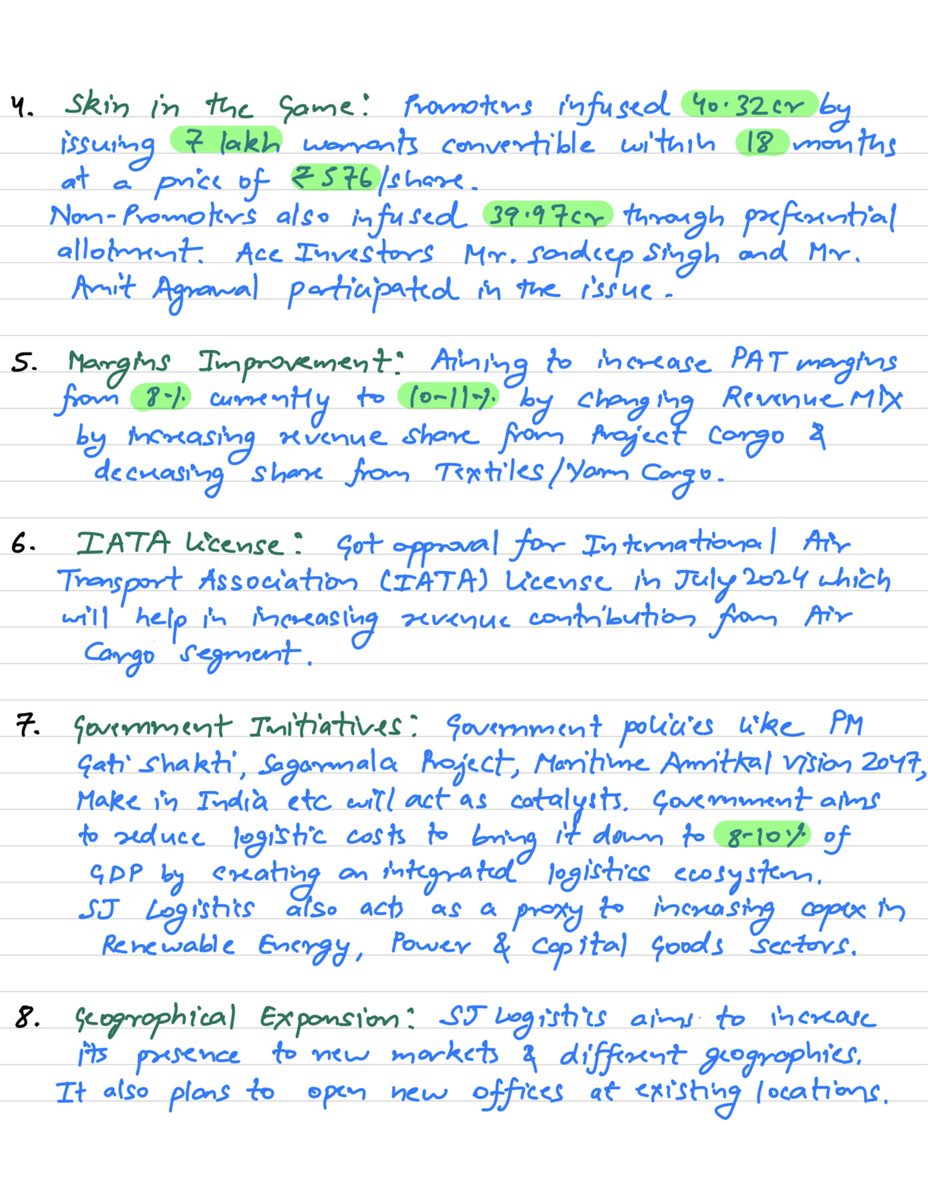 4. Skin in the Game: Promoters infused 40.32cr by
issuing 7 lakh warrants convertible within 18 months
at a price of ₹576/share.
Non-Promoters also infused 39.97cr through preferential
allotment. Ace Investors Mr. Sandeep Singh and Mr.
Amit Agrawal participated in the issue.
5. Margins Improvement: Aiming to increase PAT margins
from 8% currently to 10-11% by changing Revenue Mix
by increasing revenue share from Project Cargo &
decreasing share from Textiles/Yarn Cargo.
6. IATA License: Got approval for International Air
Transport Association (IATA) License in July 2024 which
will help in increasing revenue contribution from Air
Cargo Segment.
7. Government Initiatives: Government policies like PM
Gati Shakti, Sagarmala Project, Maritime Amritkal Vision 2047,
Make in India etc will act as catalysts. Government aims
to reduce logistic costs to bring it down to 8-10% of
GDP by creating an integrated logistics ecosystem.
SJ Logistics also acts as a proxy to increasing capex in
Renewable Energy, Power & Capital Goods sectors.
8. Geographical Expansion: SJ Logistics aims to increase
its presence to new markets & different geographies.
It also plans to open new offices at existing locations.